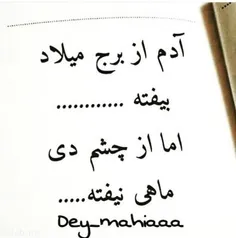 آدم از برج میلاد
بیفته ............
اما از چشم دی
ماهی نیفته.....
Dey_mahiaaa